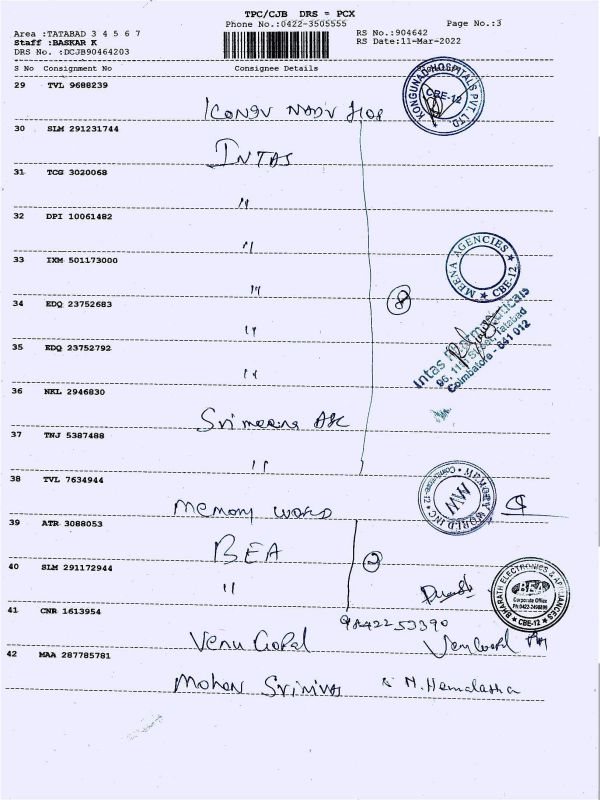 TPC/CJB DRS = PCX
Phone No.:0422-3505555
Page No.:3
Area :TATABAD 3 4 5 6 7
Staff :BASKAR K
DRS No. :DCJB90464203
RS No.:904642
RS Date:11-Mar-2022
S No Consignment No Consignee Details
29 TVL 9688239
KONGU NADU HOS
KONGUNAD HOSPITALS PVT. LTD.
CBE-12
30 SLM 291231744
INTAS
31 TCG 3020068
"
32 DPI 10061482
"
33 IXM 501173000
"
MEENA AGENCIES
CBE-12
34 EDQ 23752683
"
8
35 EDQ 23752792
"
Intas Pharmaceuticals
Street, Tatabad
Coimbatore - 641 012
36 NKL 2946830
Sri meena
37 TNJ 5387488
"
38 TVL 7634944
memory world
MEMORY WORLD INC
MW
39 ATR 3088053
BEA
40 SLM 291172944
"
2
BHARATH ELECTRONICS & APPLIANCES
BEA
Corporate Office
CBE-12
41 CNR 1613954
9842253390
Venu Gopal
Venugopal
42 MAA 287785781
Mohan Srinivas
N. Hemalatha